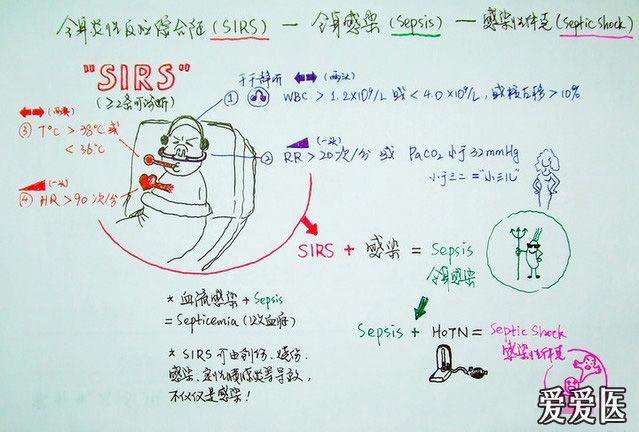 全身炎性反应综合征(SIRS) — 全身感染(Sepsis) — 感染性休克(Septic Shock)
"SIRS"
(≥2条可诊断)
① 干干静听 (两头) WBC > 1.2×10⁹/L 或 < 4.0×10⁹/L, 或核左移 > 10%
② (一头) RR > 20次/分 或 PaCO₂ 小于 32mmHg
小于三二 = "小三儿"
(两头)
③ T°C > 38°C 或
< 36°C
(一头)
④ HR > 90次/分
SIRS + 感染 = Sepsis
全身感染
* 血流感染 + Sepsis
= Septicemia (败血症)
Sepsis + HoTN = Septic Shock
感染性休克
* SIRS 可由创伤、烧伤、
感染、急性胰腺炎等导致,
不仅仅是感染!
爱爱医